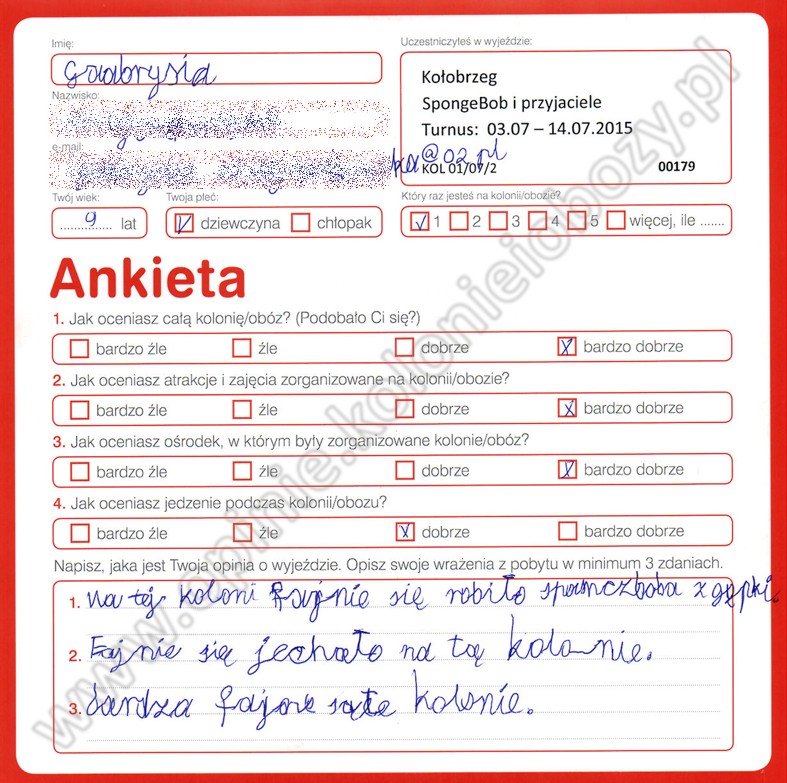 Imię:
Gabrysia
Nazwisko:
e-mail:
ka@02.pl
Twój wiek:
9 lat
Twoja płeć:
dziewczyna chłopak
Uczestniczyłeś w wyjeździe:
Kołobrzeg
SpongeBob i przyjaciele
Turnus: 03.07 – 14.07.2015
KOL 01/07/2 00179
Który raz jesteś na kolonii/obozie?
1 2 3 4 5 więcej, ile .......
Ankieta
1. Jak oceniasz całą kolonię/obóz? (Podobało Ci się?)
bardzo źle źle dobrze bardzo dobrze
2. Jak oceniasz atrakcje i zajęcia zorganizowane na kolonii/obozie?
bardzo źle źle dobrze bardzo dobrze
3. Jak oceniasz ośrodek, w którym były zorganizowane kolonie/obóz?
bardzo źle źle dobrze bardzo dobrze
4. Jak oceniasz jedzenie podczas kolonii/obozu?
bardzo źle źle dobrze bardzo dobrze
Napisz, jaka jest Twoja opinia o wyjeździe. Opisz swoje wrażenia z pobytu w minimum 3 zdaniach.
1. Na tej koloni fajnie się robiło spamczboba z gąpki.
2. Fajnie się jechało na tą kolonie.
3. bardza fajne są te kolonie.
www.opinie.kolonieiobozy.pl